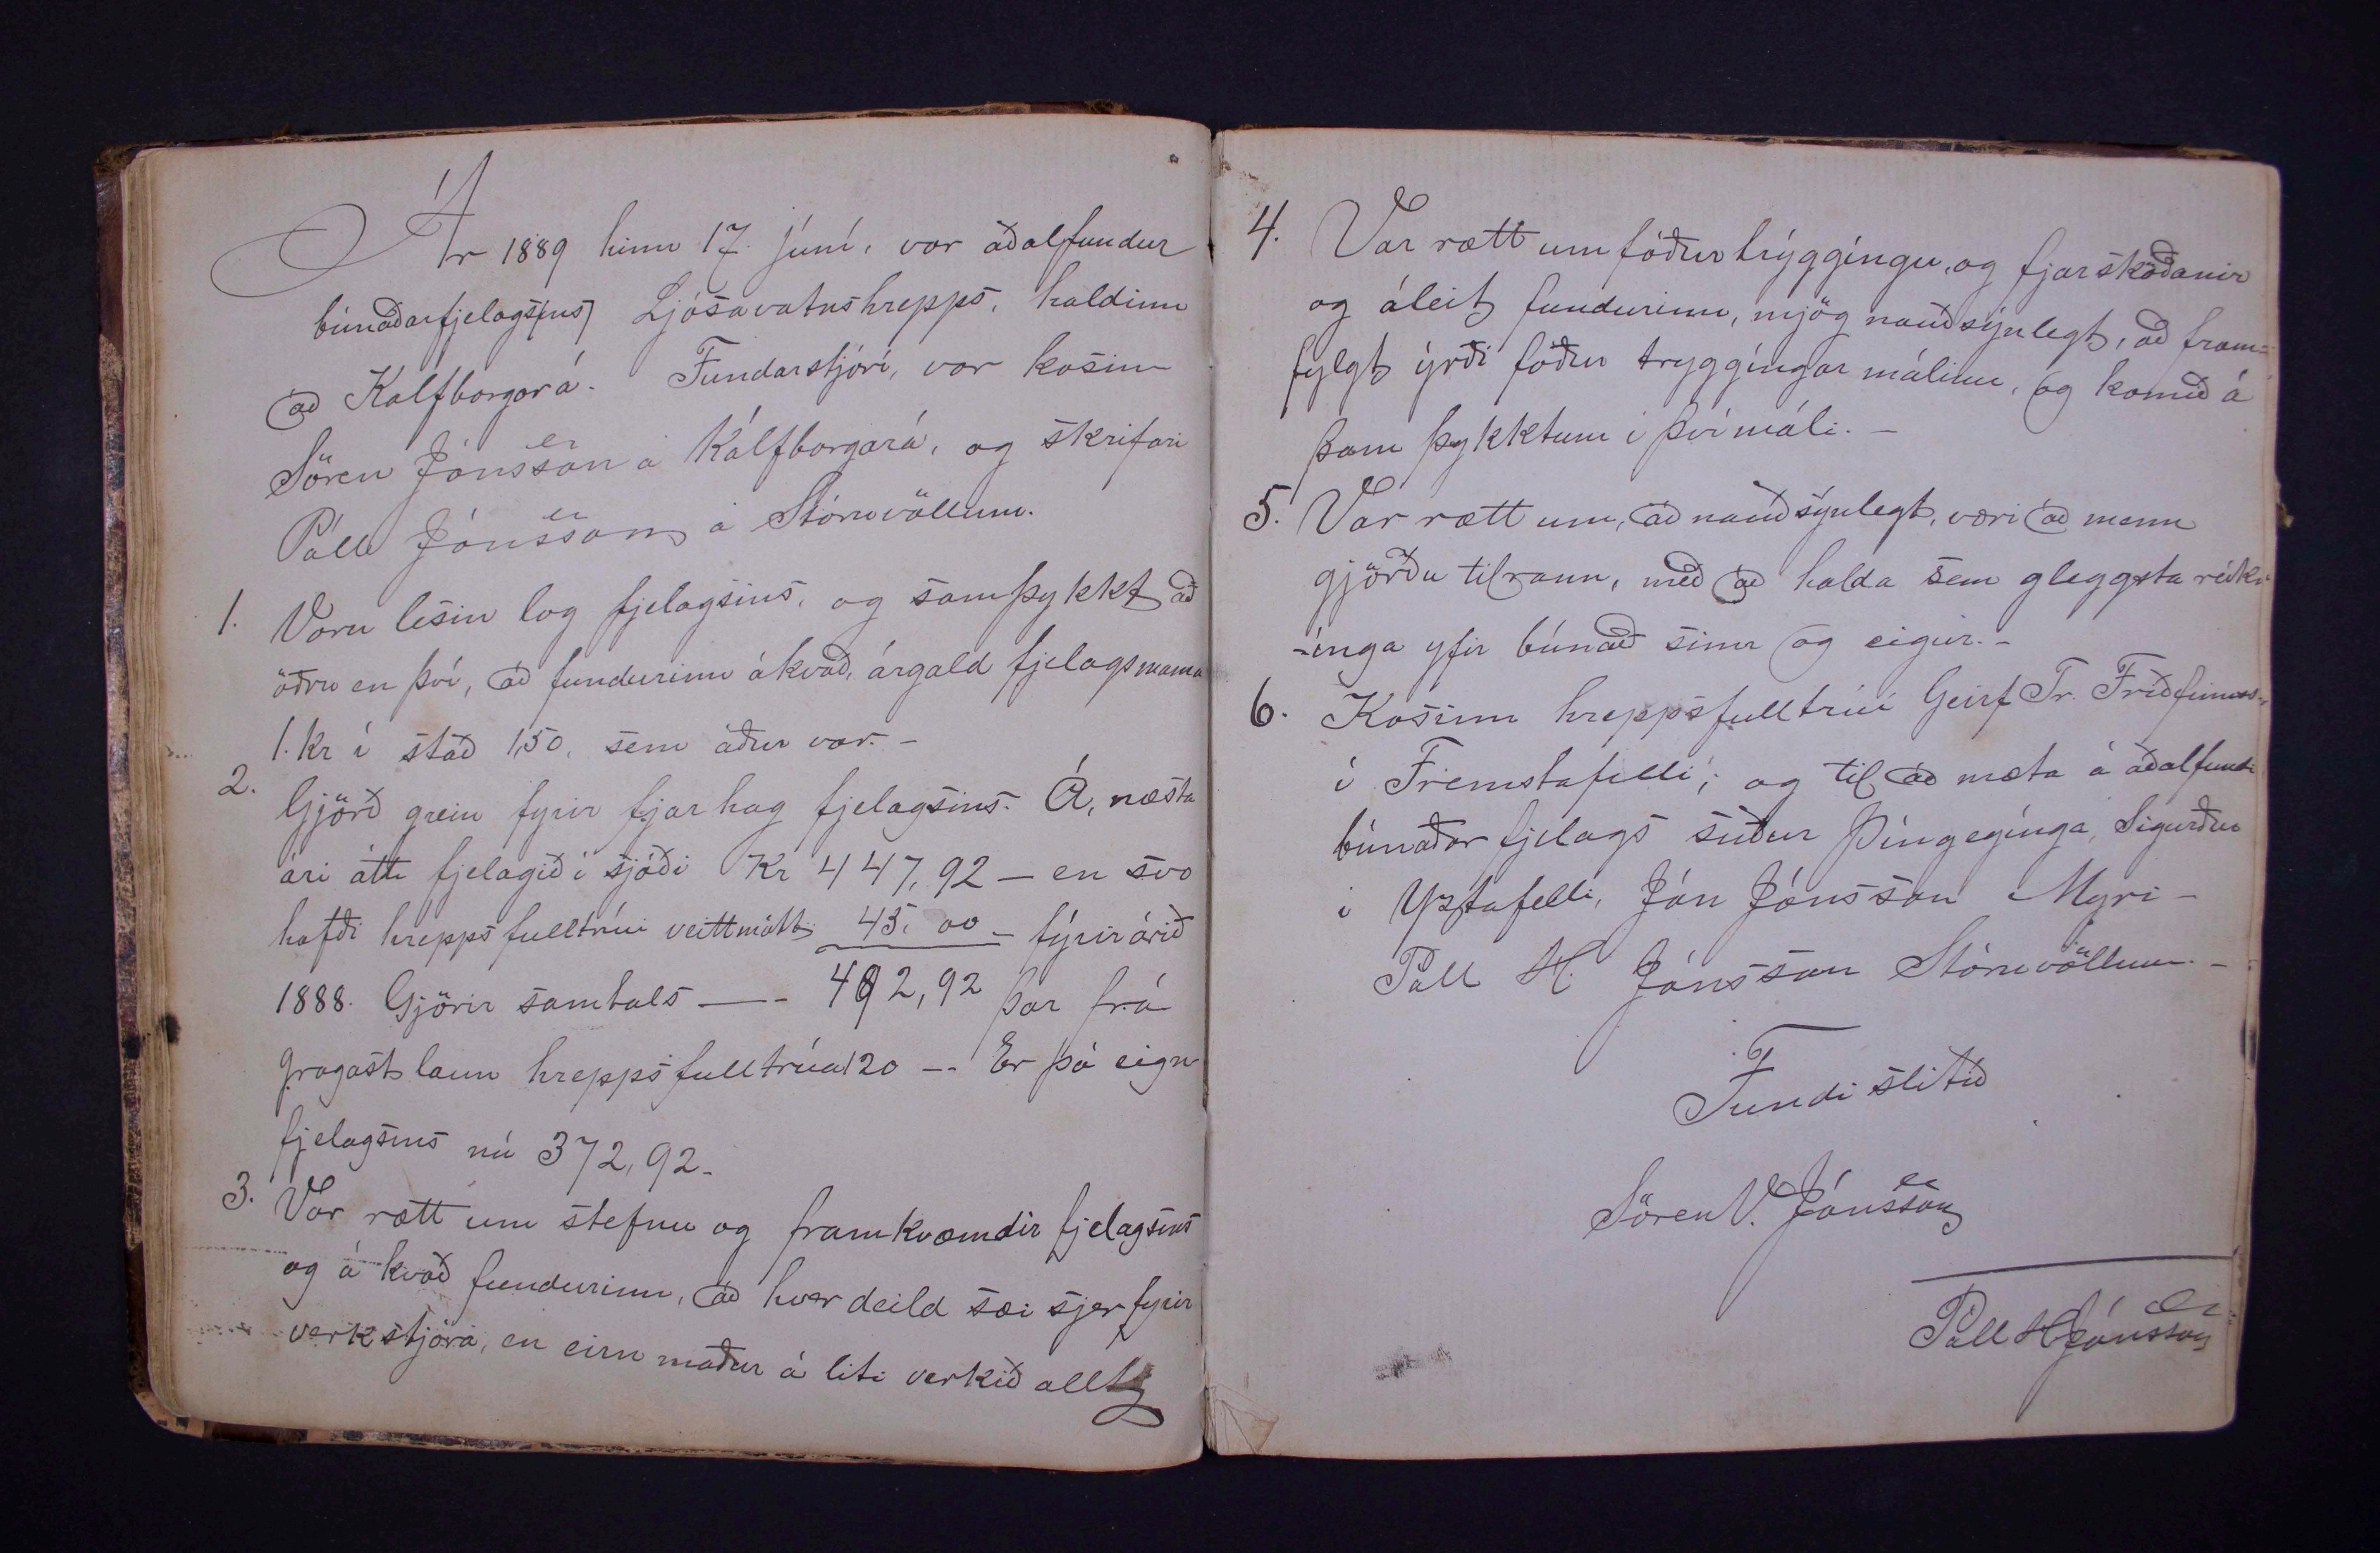 Ár 1889 hinn 17. júní, var aðalfundur
búnaðarfjelags(ins) Ljósavatnshrepps, haldinn
að Kalfborgará. Fundarstjóri, var kosinn
Sören Jónsson á Kálfborgará, og skrifari
Páll Jónsson á Stóruvöllum.
1. Voru lesin log fjelagsins, og samþykkt að
öðru en því, að fundurinn ákvað, árgald fjelagsmanna
1. kr í stað 1,50, sem áður var. -
2. Gjörð grein fyrir fjarhag fjelagsins. Á, næsta
ári átti fjelagið í sjóði Kr 447,92 - en svo
hafði hreppsfulltrúi veitt mótt. 45,00 - fýrir árið
1888. Gjörir samtals - - 492,92 þar frá
dragast laun hreppsfulltrúa 120 - - Er þá eign
fjelagsins nú 372,92 -
3. Var rætt um stefnu og framkvæmdir fjelagsins
og á kvað fundurinn, að hver deild sæi sjer fyrir
verkstjóra, en einn maður á liti verkið allt
4. Var rætt um fóðurtrýggíngu, og fjarskoðanir
og áleit fundurinn, mjög nauðsýnlegt, að fram=
fylgt ýrði fóður tryggíngar málinu, og komið á
sam þykktum í því máli. -
5. Var rætt um, að nauðsýnlegt, væri að menn
gjörðu tilraun, með að halda sem gleggsta reikn
-ínga yfir búnað sinn og eigur. -
6. Kosinn hreppsfulltrúi Geirf. Tr. Friðfinnss-
í Fremstafelli; og til að mæta á aðalfundi
búnaðar fjelags suður Þíngegínga, Sigurður
í Yztafelli, Jón Jónsson Myri -
Páll H. Jónsson Stóruvöllum. -
Fundi slitið
Sören V. Jónsson
Páll H Jónsson